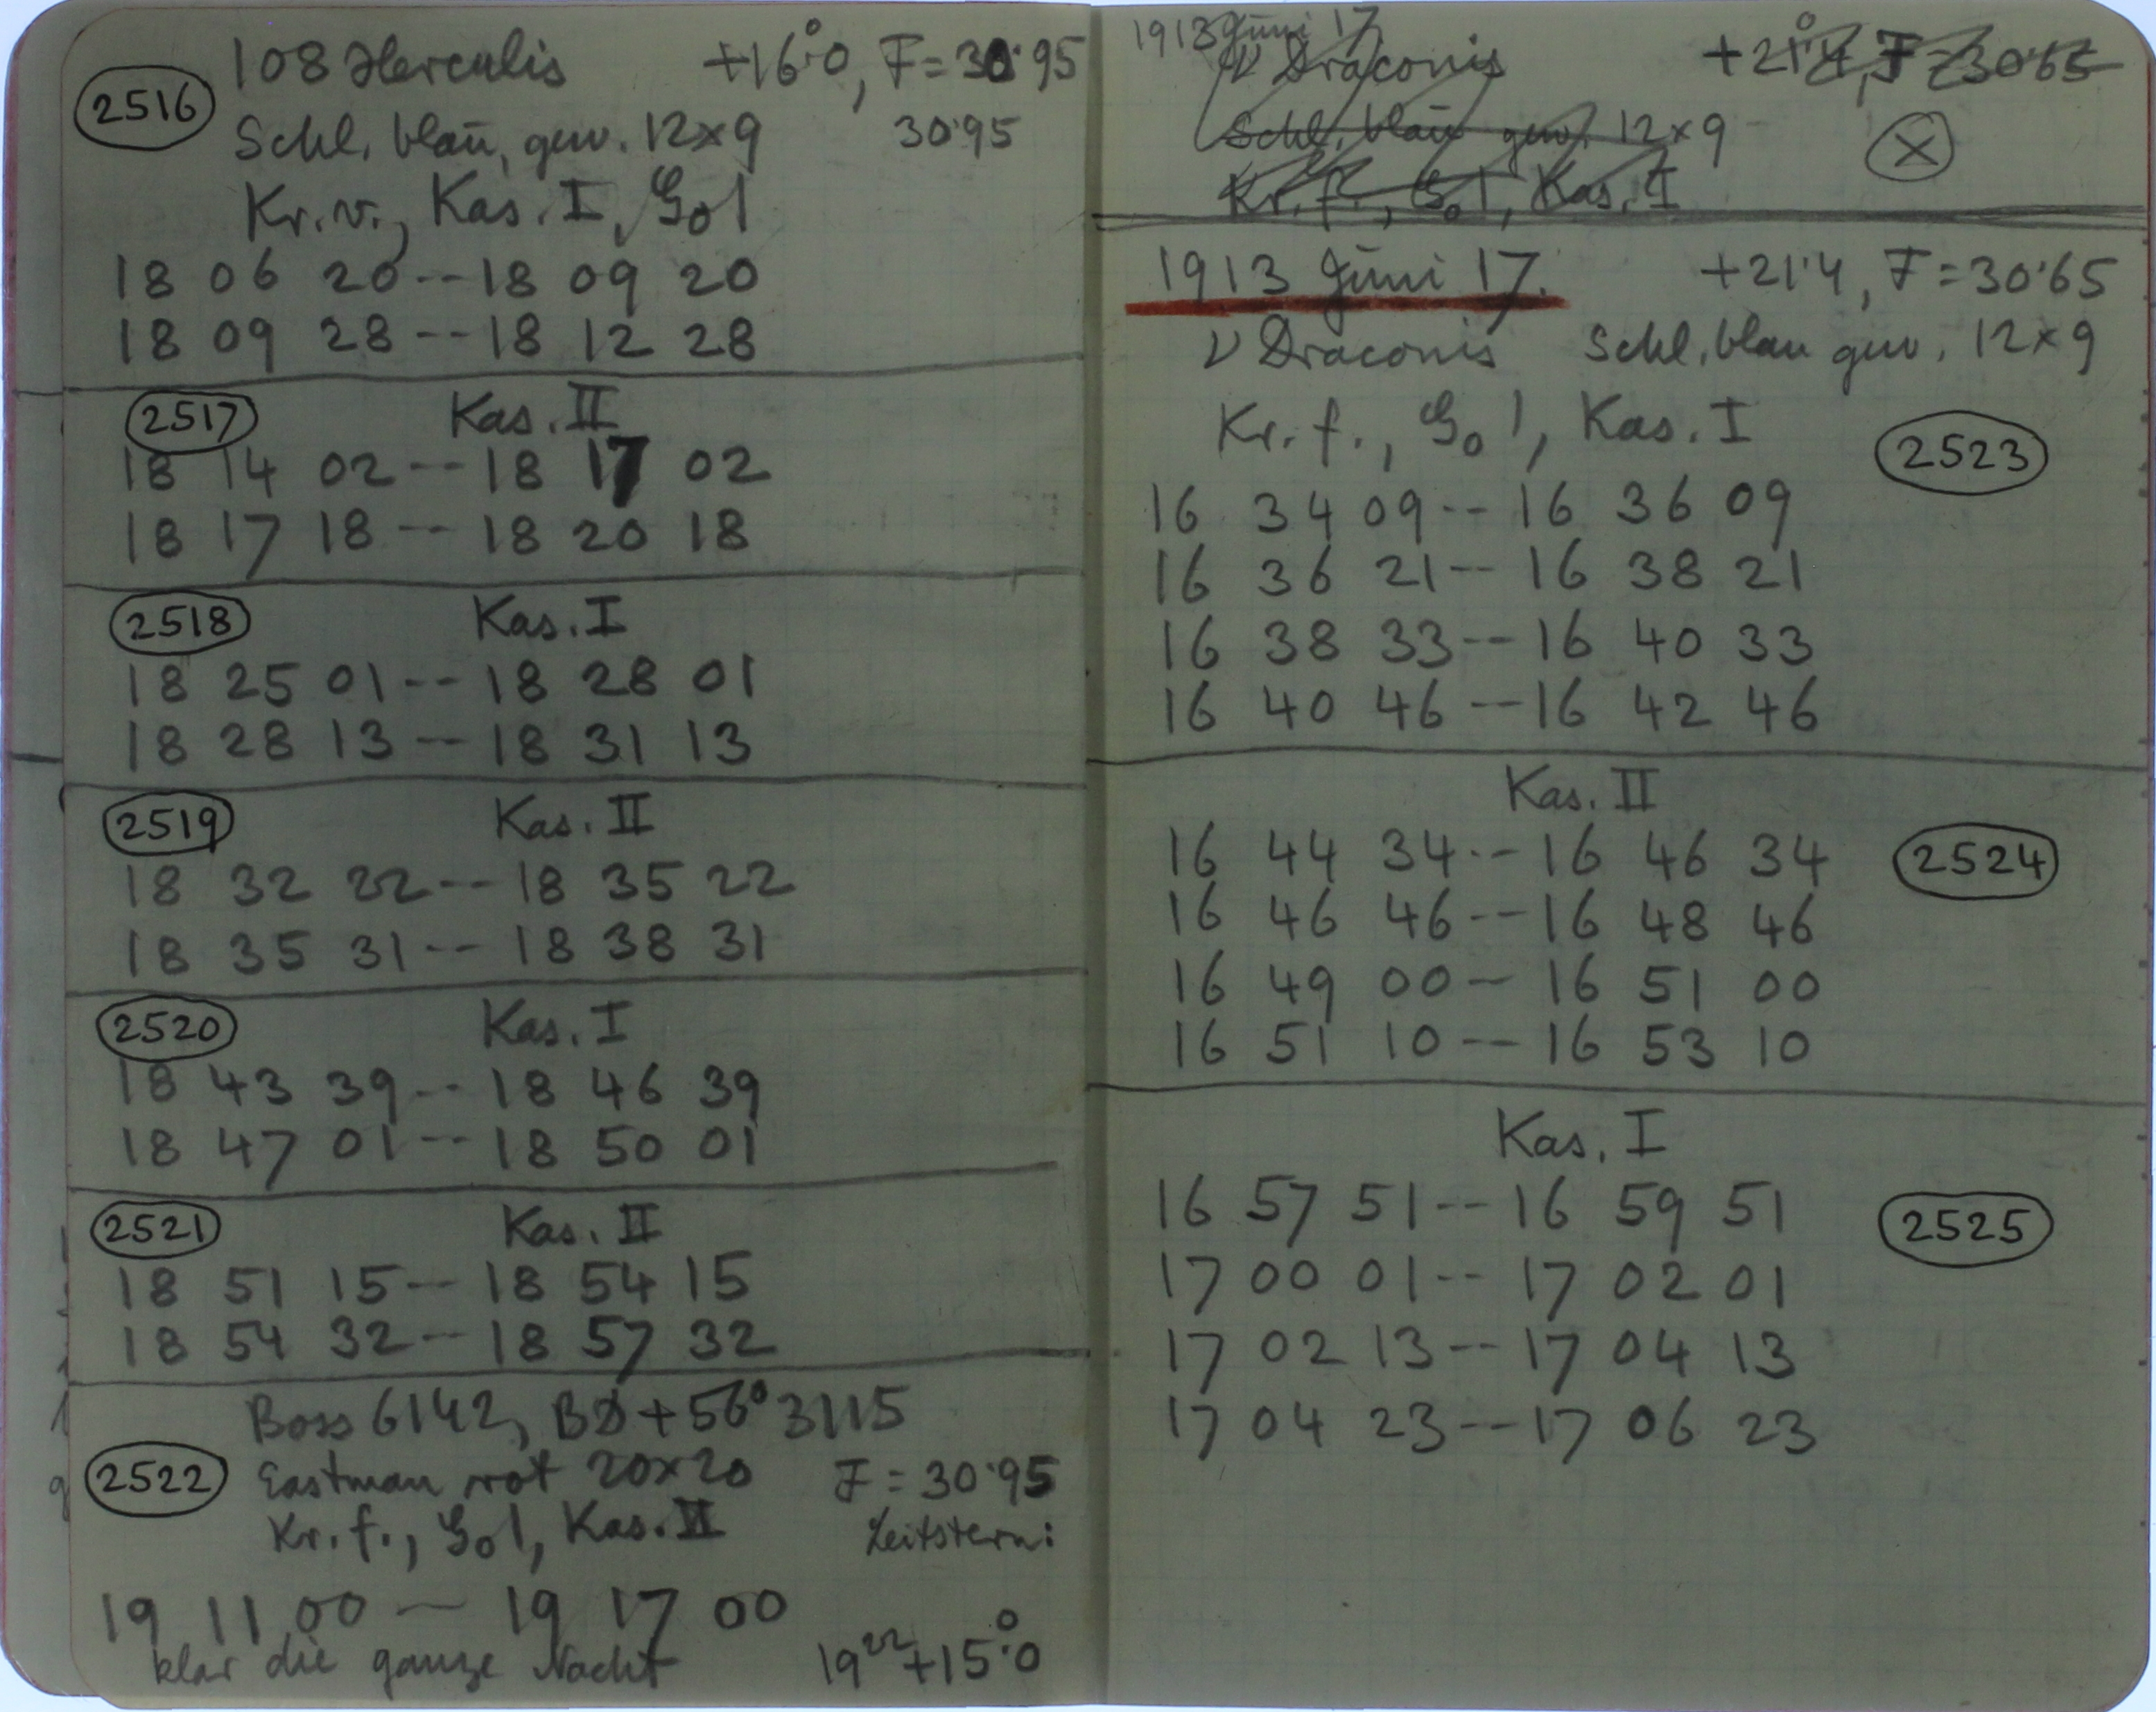 108 Herculis +16°.0, F=30.95
2516
Schl. blau, gew. 12×9 30.95
Kr. v., Kas. I, Go 1
18 06 20 -- 18 09 20
18 09 28 -- 18 12 28
2517 Kas. II
18 14 02 -- 18 17 02
18 17 18 -- 18 20 18
2518 Kas. I
18 25 01 -- 18 28 01
18 28 13 -- 18 31 13
2519 Kas. II
18 32 22 -- 18 35 22
18 35 31 -- 18 38 31
2520 Kas. I
18 43 39 -- 18 46 39
18 47 01 -- 18 50 01
2521 Kas. II
18 51 15 -- 18 54 15
18 54 32 -- 18 57 32
Boss 6142, BD+56° 3115
2522 Eastman rot 20×20 F = 30.95
Kr. f., Go 1, Kas. II Leitstern:
19 11 00 — 19 17 00
klar die ganze Nacht 19 22 +15°.0
1913 Juni 17
ν Draconis +21°.4, F=30.65
Schl. blau gew. 12×9 X
Kr. f., Go 1, Kas. I
1913 Juni 17. +21.4, F=30.65
ν Draconis Schl. blau gew. 12×9
Kr. f., Go 1, Kas. I 2523
16 34 09 -- 16 36 09
16 36 21 -- 16 38 21
16 38 33 -- 16 40 33
16 40 46 -- 16 42 46
Kas. II
16 44 34 -- 16 46 34 2524
16 46 46 -- 16 48 46
16 49 00 -- 16 51 00
16 51 10 -- 16 53 10
Kas. I
16 57 51 -- 16 59 51 2525
17 00 01 -- 17 02 01
17 02 13 -- 17 04 13
17 04 23 -- 17 06 23